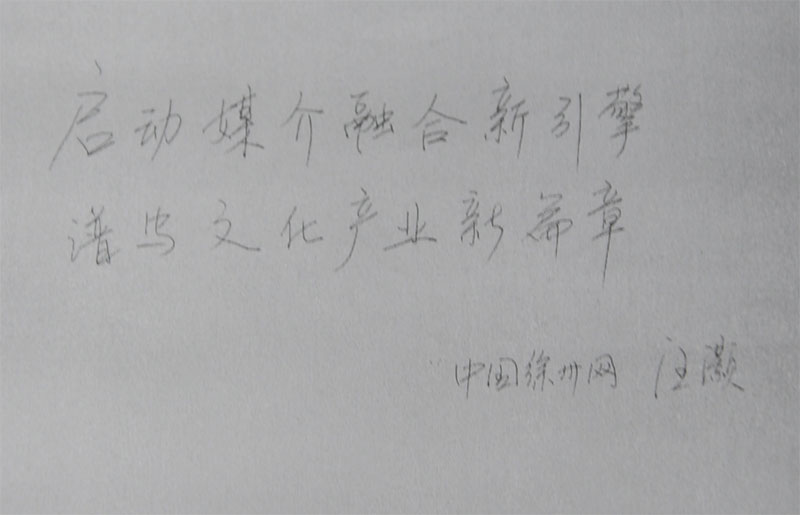 启动媒介融合新引擎
谱写文化产业新篇章
中国徐州网 汪灏